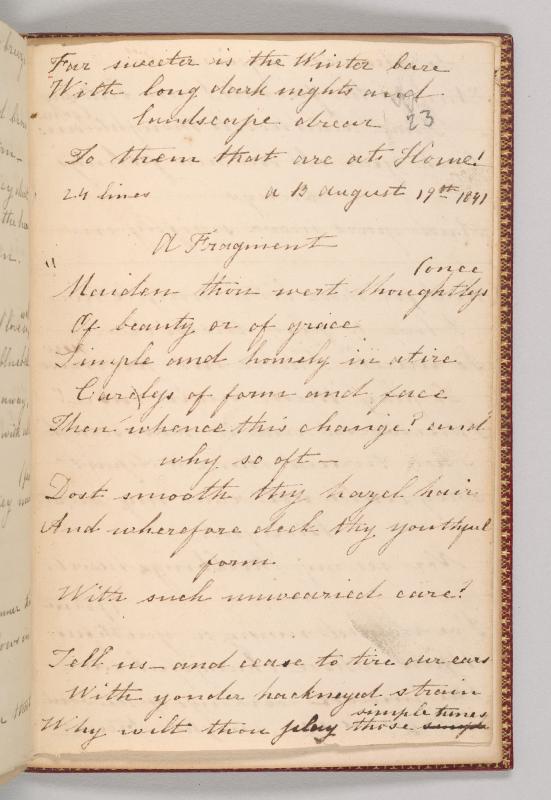 Far sweeter is the Winter bare
With long dark nights and
landscape drear
23
To them that are at Home!
24 lines a B august 19th 1841
A Fragment
(once
" Maiden thou wert thoughtlefs
Of beauty or of grace
Simple and homely in atire
Carelefs of form and face
Then whence this change? and
why so oft —
Dost smooth thy hazel hair
And wherefore deck thy youthful
form
With such unwearied care?
Tell us — and cease to tire our ears
With yonder hackneyed strain
simple tunes
Why wilt thou play those simple